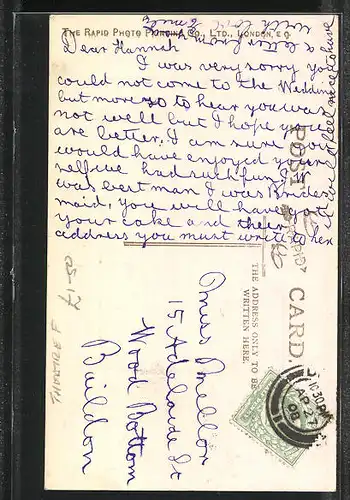 THE RAPID PHOTO PRINTING CO., LTD., LONDON, E.C.
Dear Hannah
I was very sorry you
could not come to the Wedding
but more so to hear you was
not well but I hope you
are better. I am sure you
would have enjoyed your
self we had such fun, 
was best man I was Brides
maid, you will have got
your cake and their
address you must write to her
a letter from
with love Emily
POST CARD.
THE ADDRESS ONLY TO BE
WRITTEN HERE.
Miss Mellor
15 Adelaide St
Wood Bottom
Baildon
10.30 PM
AP 27
08
05-17
THEATRE F